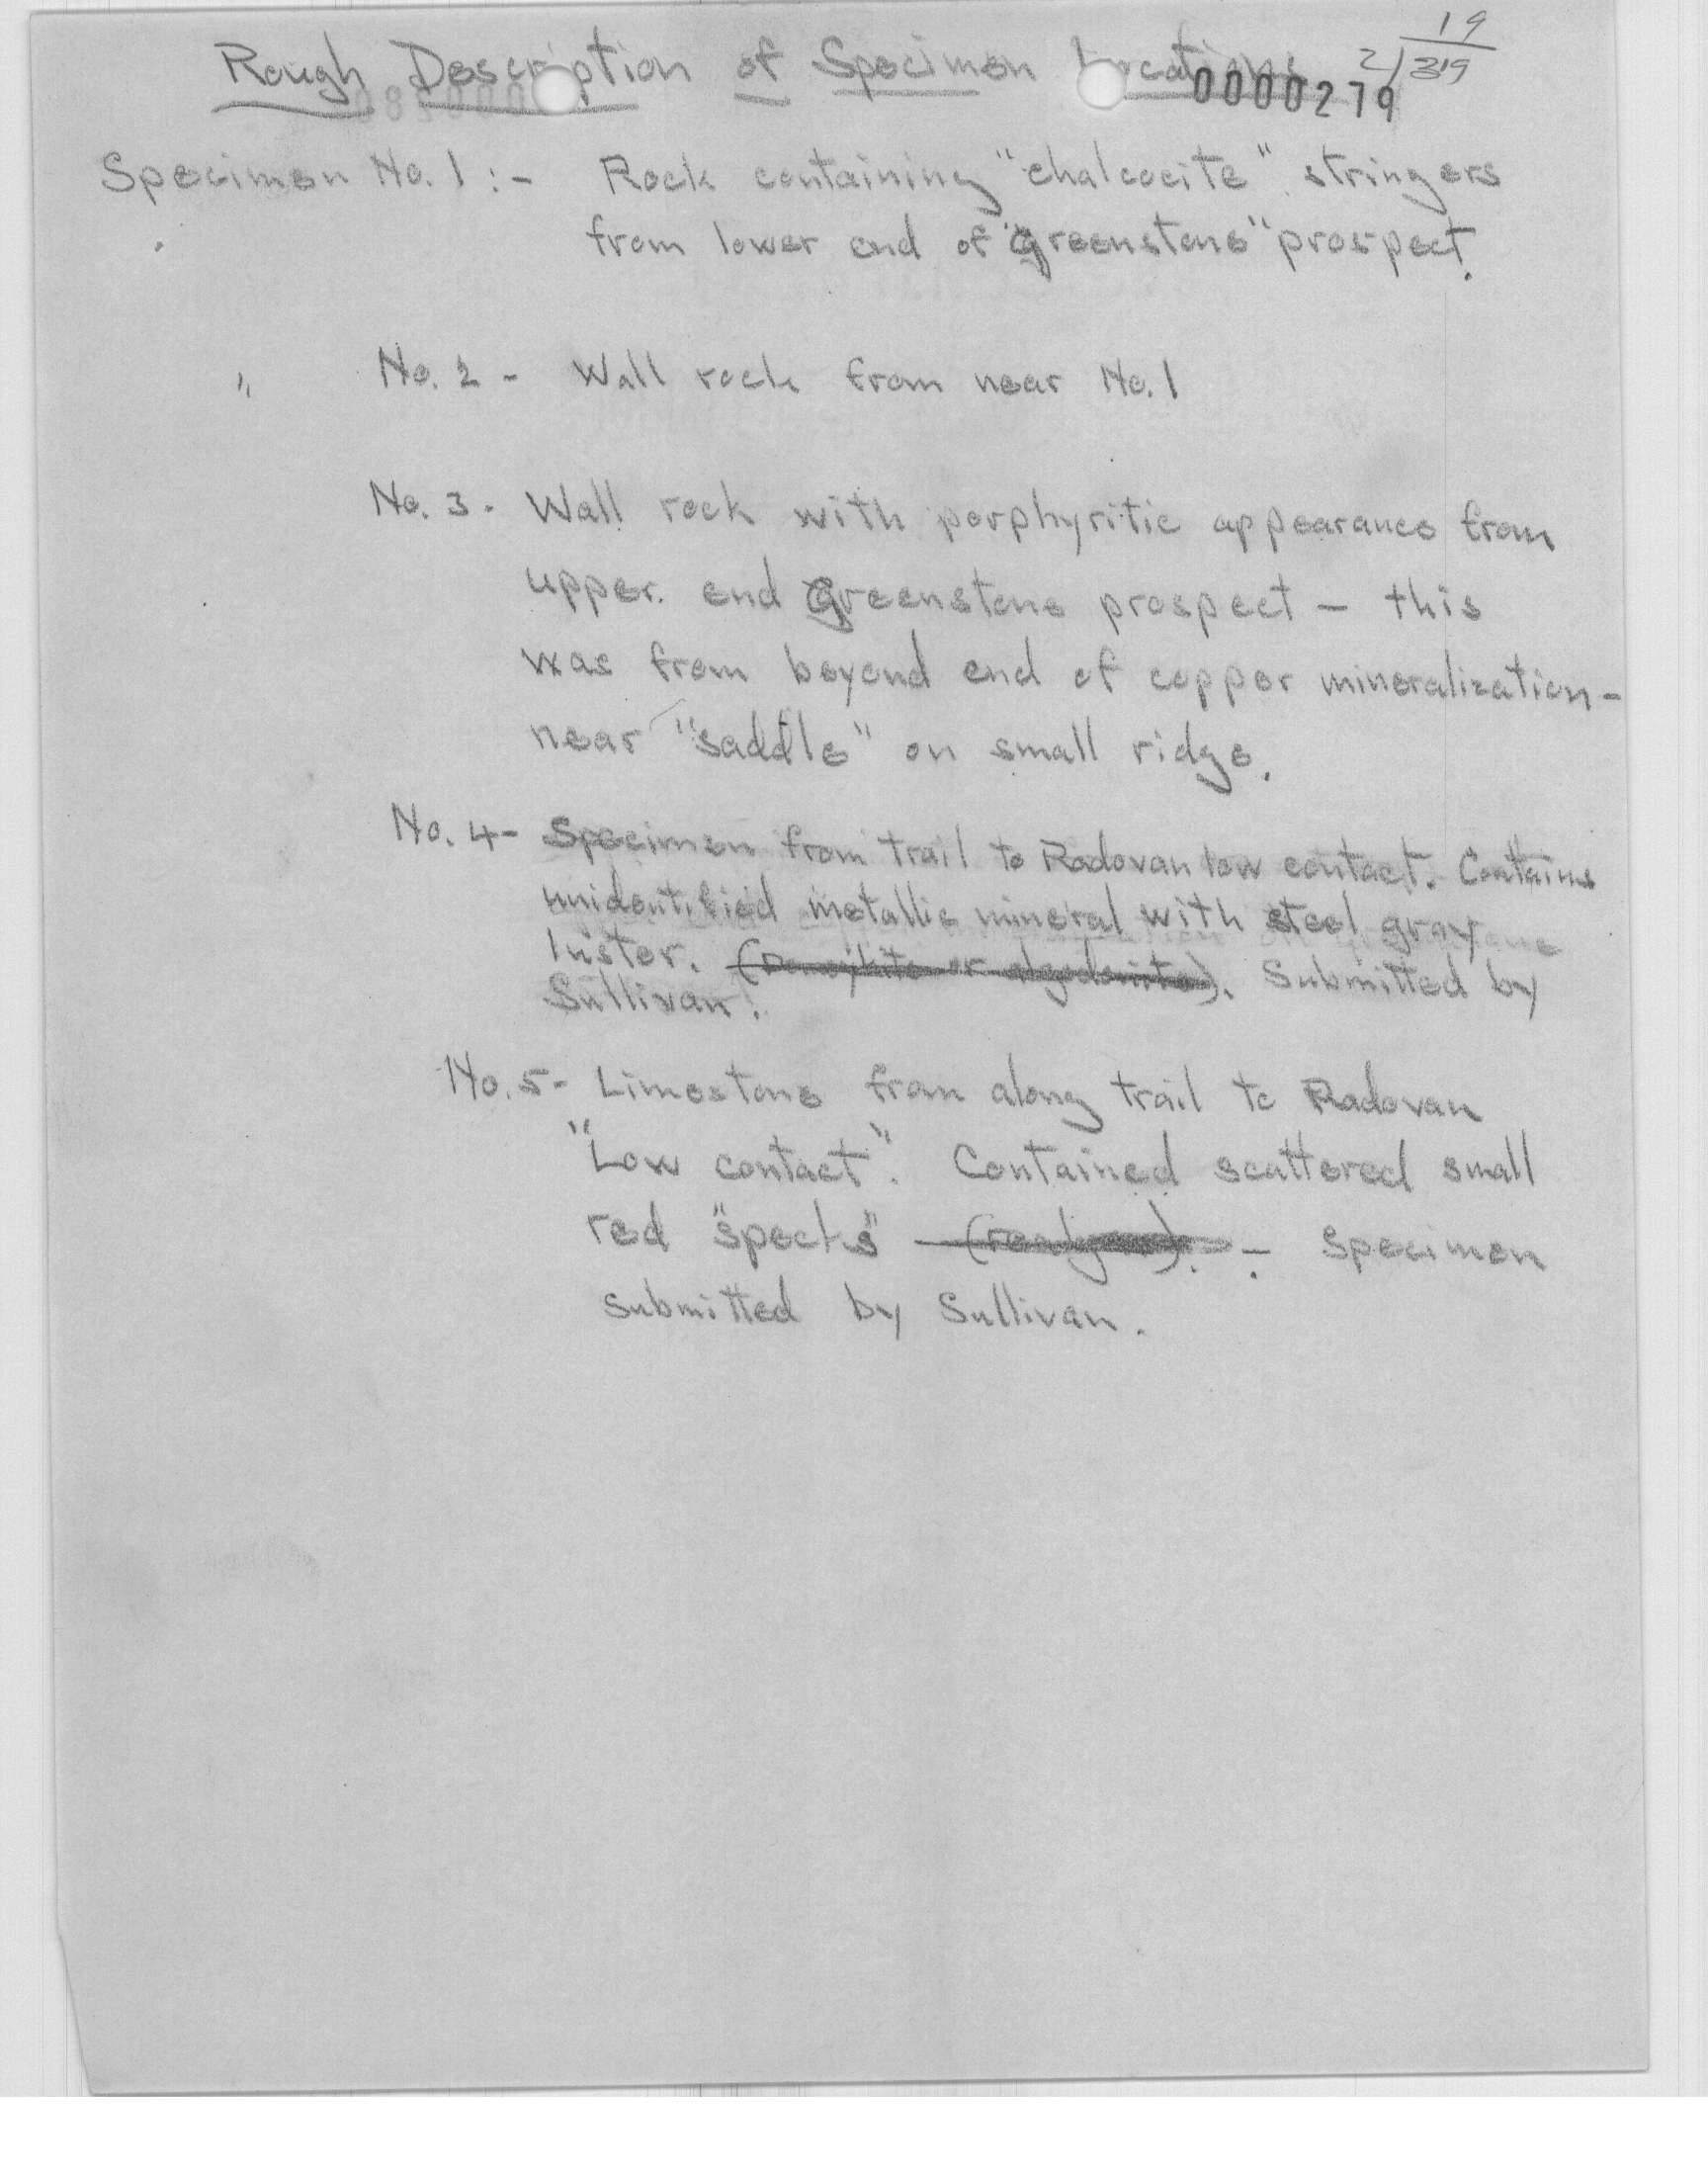 19
2/319
Rough Description of Specimen Locations
0000279
Specimen No. 1 :- Rock containing "chalcocite" stringers
from lower end of "Greenstone" prospect.
" No. 2 - Wall rock from near No. 1
No. 3 - Wall rock with porphyritic appearance from
upper end Greenstone prospect — this
was from beyond end of copper mineralization -
near "saddle" on small ridge.
No. 4 - Specimen from trail to Radovan low contact. Contains
unidentified metallic mineral with steel gray
luster. (Domeykite or algodonite). Submitted by
Sullivan.
No. 5 - Limestone from along trail to Radovan
"Low contact". Contained scattered small
red "specks" - Specimen
submitted by Sullivan.